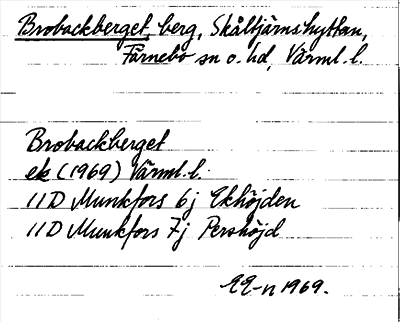 Brobackberget, berg, Skåltjärnshyttan,
Färnebo sn o. hd, Värml. l.
Brobackberget
ek (1969) Värml. l.
11D Munkfors 6j Ekhöjden
11D Munkfors 7j Pershöjd
EE-n 1969.